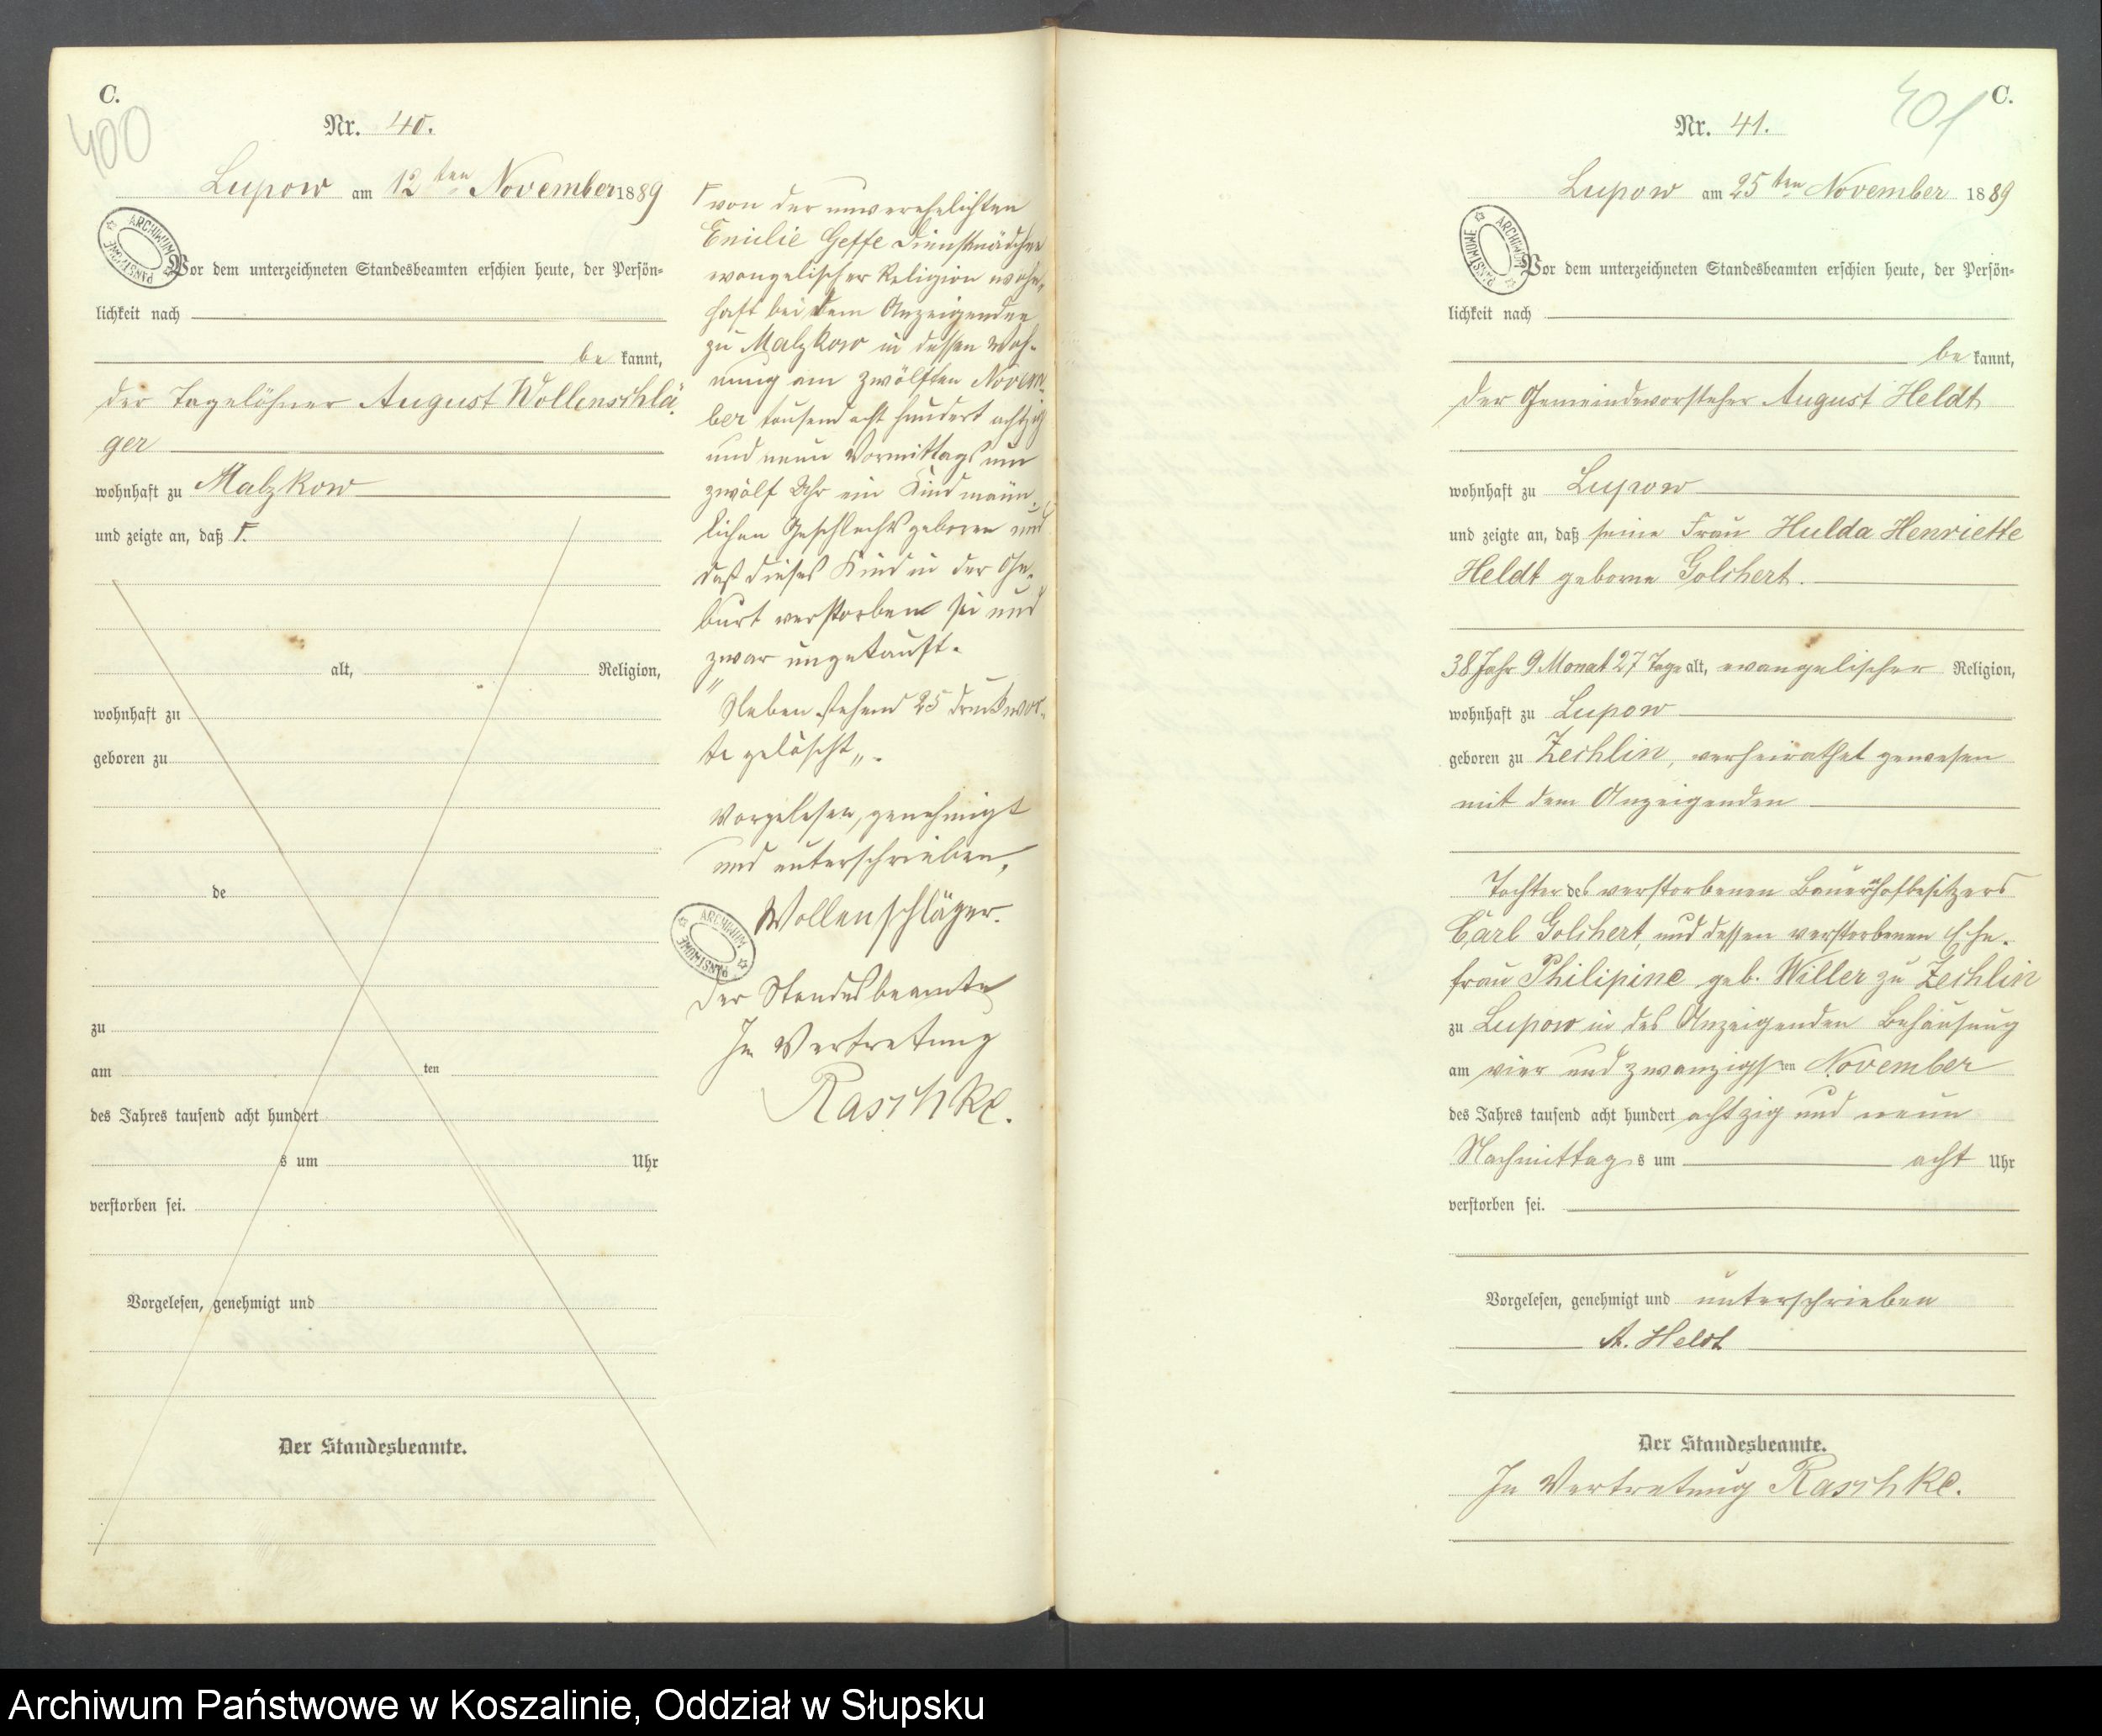 C.
400
Nr. 40.
Lupow am 12ten November 1889
ARCHIWUM PAŃSTWOWE
Vor dem unterzeichneten Standesbeamten erschien heute, der Persön-
lichkeit nach
be kannt,
der Tagelöhner August Wollenschlä-
ger
wohnhaft zu Malzkow
und zeigte an, daß Γ.
alt, Religion,
wohnhaft zu
geboren zu
de
zu
am ten
des Jahres tausend acht hundert
s um Uhr
verstorben sei.
Vorgelesen, genehmigt und
Der Standesbeamte.
Γ von der unverehelichten
Emilie Geffe Dienstmädchen
evangelischer Religion wohn-
haft bei dem Anzeigenden
zu Malzkow in dessen Woh-
nung am zwölften Novem-
ber tausend acht hundert achtzig
und neun Vormittags um
zwölf Uhr ein Kind männ-
lichen Geschlechts geboren und
daß dieses Kind in der Ge-
burt verstorben sei und
zwar ungetauft.
„Nebenstehend 25 Druckwor-
te gelöscht„.
Vorgelesen, genehmigt
und unterschrieben,
Wollenschläger.
ARCHIWUM PAŃSTWOWE
Der Standesbeamte
In Vertretung
Raschke.
C.
401
Nr. 41.
Lupow am 25ten November 1889
ARCHIWUM PAŃSTWOWE
Vor dem unterzeichneten Standesbeamten erschien heute, der Persön-
lichkeit nach
be kannt,
der Gemeindevorsteher August Heldt
wohnhaft zu Lupow
und zeigte an, daß seine Frau Hulda Henriette
Heldt geborne Golchert.
38 Jahr 9 Monat 27 Tage alt, evangelischer Religion,
wohnhaft zu Lupow
geboren zu Zechlin, verheirathet gewesen
mit dem Anzeigenden
Tochter des verstorbenen Bauerhofbesitzers
Carl Golchert, und dessen verstorbenen Ehe-
frau Philipine geb. Willer zu Zechlin
zu Lupow in des Anzeigenden Behausung
am vier und zwanzigsten November
des Jahres tausend acht hundert achtzig und neun
Nachmittags um acht Uhr
verstorben sei.
Vorgelesen, genehmigt und unterschrieben
A. Heldt
Der Standesbeamte.
In Vertretung Raschke.
Archiwum Państwowe w Koszalinie, Oddział w Słupsku